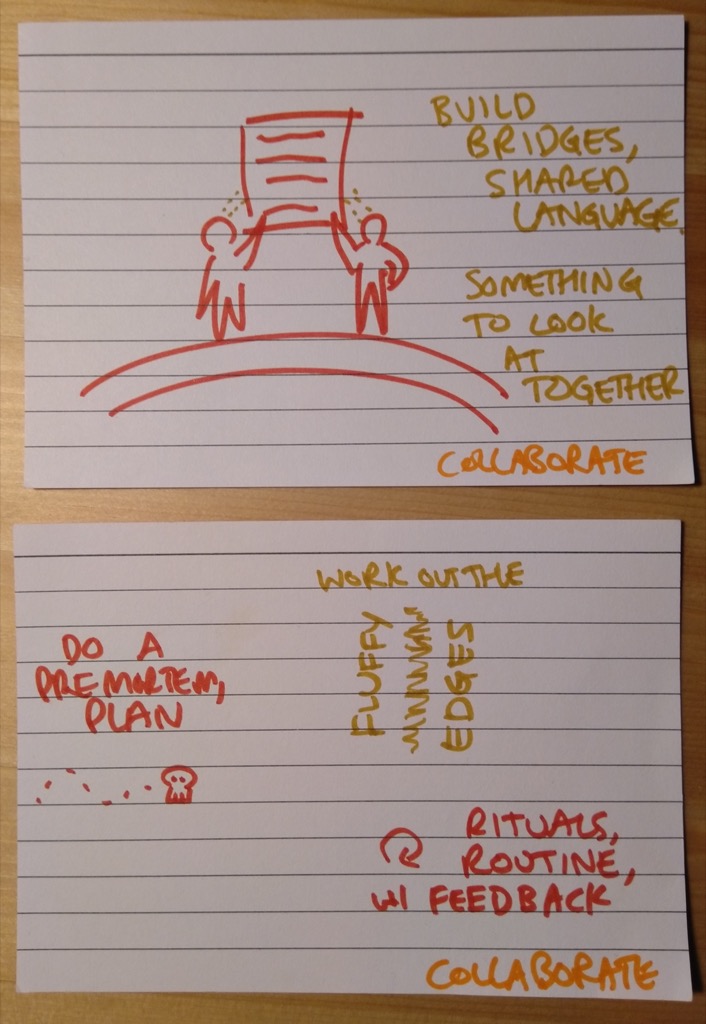 BUILD
BRIDGES,
SHARED
LANGUAGE.
SOMETHING
TO LOOK
AT
TOGETHER
COLLABORATE
WORK OUT THE
FLUFFY
EDGES
DO A
PREMORTEM,
PLAN
RITUALS,
ROUTINE,
W/ FEEDBACK
COLLABORATE